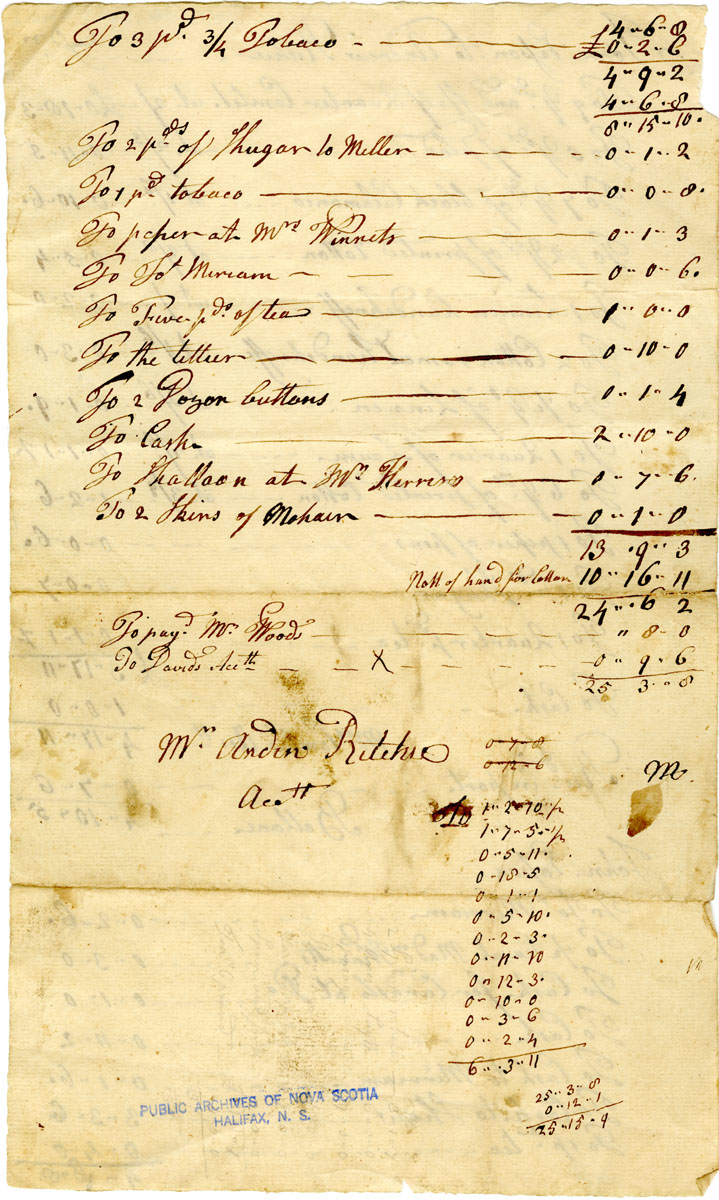 14 " 6 " 8
To 3 pd 3/4 Tobaco - £0 - 2 - 6
4 " 9 " 2
4 " 6 " 8
8 " 15 " 10 "
To 2 pds of Shugar to Meller - 0 - 1 - 2
To 1 pd tobaco - 0 - 0 - 8
To peper at Mrs Winnets - 0 - 1 - 3
To Do Miriam - 0 - 0 - 6
To Five pds of tea - 1 - 0 - 0
To the tetteer - 0 - 10 - 0
To 2 Dozon buttons - 0 - 1 - 4
To Cash - 2 - 10 - 0
To Shalloon at Mrs Herreso - 0 - 7 - 6
To 2 Skins of Mohair - 0 - 1 - 0
13 " 9 " 3
Nott of hand for Cotton 10 " 16 " 11
24 " 6 2
To payd Mr Woods - " 8 - 0
To Davids Acctt - X - 0 " 9 " 6
25 3 " 8
Mr Andrw Ritchie
Acctt
0 - 7 - 8
0 - 12 - 6
M
To 1 " 2 - 10
1 - 7 - 5
0 - 5 - 11
0 - 18 - 5
0 - 1 - 1
0 - 5 - 10
0 - 2 - 3
0 - 11 - 10
0 - 12 - 3
0 - 10 - 0
0 - 3 - 6
0 - 2 - 4
6 " 3 " 11
25 " 3 " 8
0 " 12 - 1
25 " 15 " 9
PUBLIC ARCHIVES OF NOVA SCOTIA
HALIFAX, N. S.